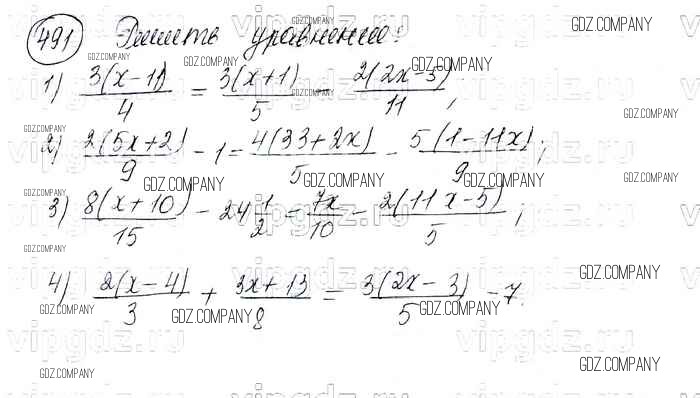 491 Решить уравнение:
1) 3(x-11)/4 = 3(x+1)/5 - 2(2x-5)/11;
2) 2(5x+2)/9 - 1 = 4(33+2x)/5 - 5(1-11x)/9;
3) 8(x+10)/15 - 24 1/2 = 7x/10 - 2(11x-5)/5;
4) 2(x-4)/3 + 3x+13/8 = 3(2x-3)/5 - 7.
GDZ.COMPANY
vipgdz.ru